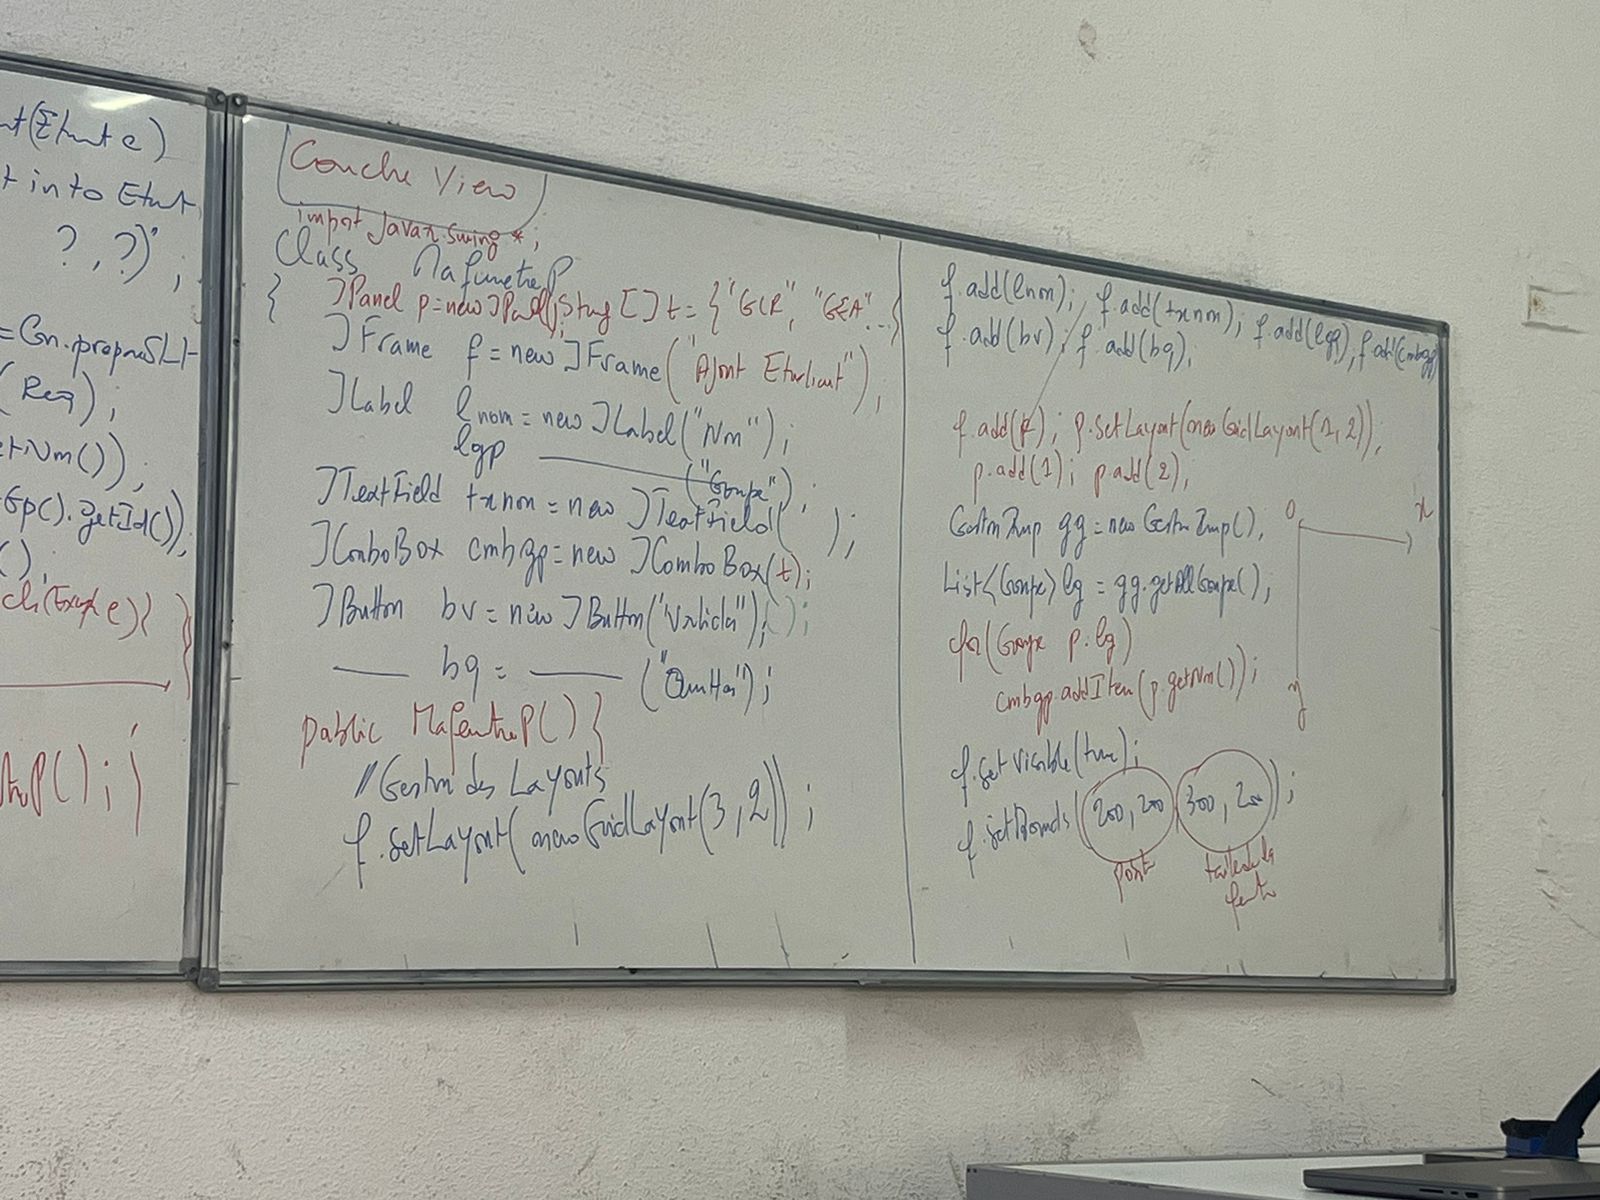 nt(Etunt e)
t into Etunt
?, ?)";
=Cn.prepareSt
(Req);
etNm());
Gp().getId()),
();
ch(Except e){ }
treP();
Couche View
import Javax.swing *;
Class MafenetreP
{ JPanel p=new JPanel(); String [] t = {"GLR", "GEA"...}
JFrame f = new JFrame("Ajout Etudiant");
JLabel lnom = new JLabel("Nm");
lgp ——— ("Goupe");
JTextField txnom = new JTextField( );
JComboBox cmbgp = new JComboBox(t);
JButton bv = new JButton("Valider");
—— bq = —— ("Quitter");
public MafentreP() {
//Gestion des Layouts
f.setLayout(new GridLayout(3,2));
f.add(lnom); f.add(txnom); f.add(lgp); f.add(cmbgp)
f.add(bv); f.add(bq);
f.add(p); p.setLayout(new GridLayout(1,2));
p.add(1); p.add(2);
gg = new
0 x
List<Goupe> lg = gg.getAllGoupe();
for(Goupe p:lg)
cmbgp.addItem(p.getNm());
y
f.setVisible(true);
f.setBounds(200, 200, 300, 200);
posit taille de la
fentr